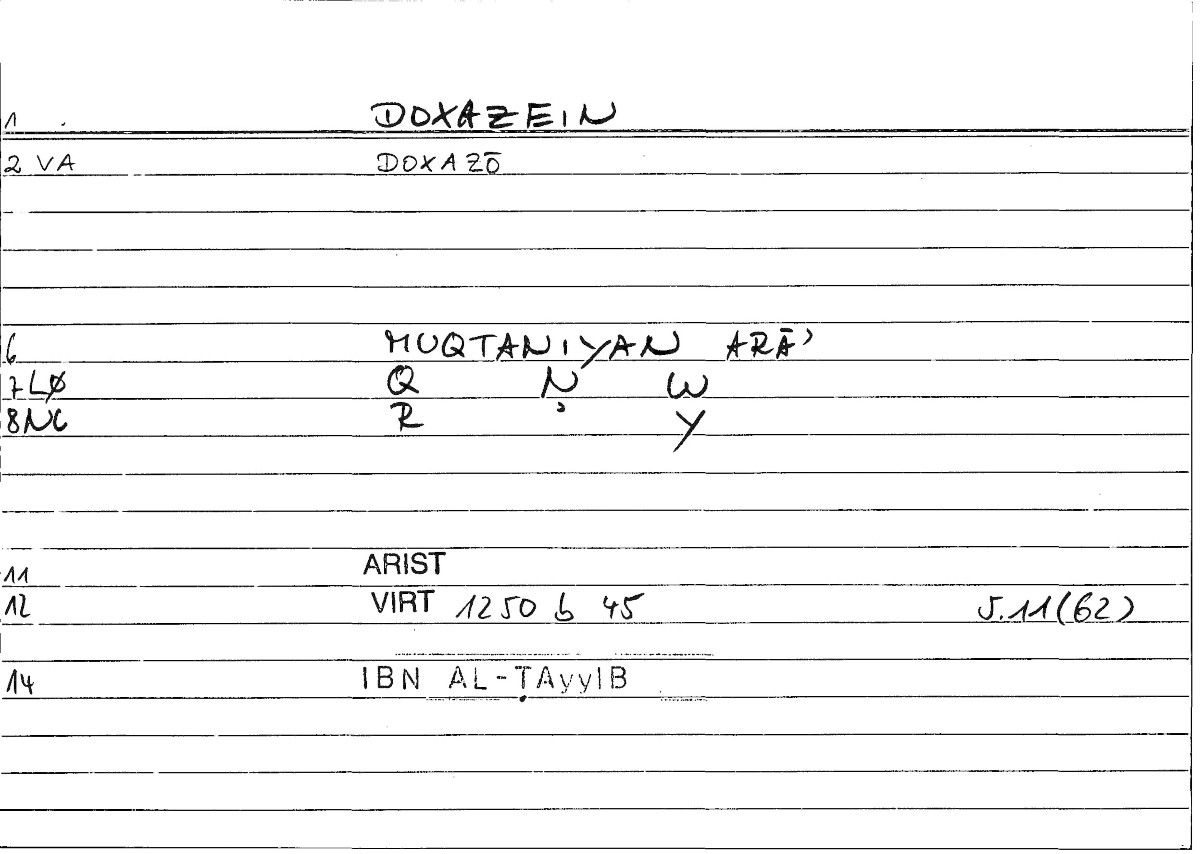 1 DOXAZEIN
2 VA DOXAZŌ
6 MUQTANIYAN ARĀʾ
7 LØ Q N W
8 NC R ʾ Y
11 ARIST
12 VIRT 1250 b 45 S.11(62)
14 IBN AL-ṬAyyIB